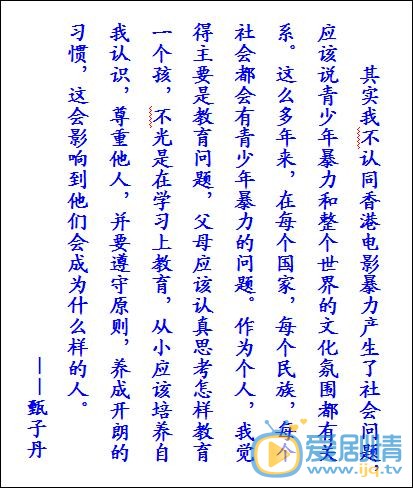 其实我不认同香港电影暴力产生了社会问题，
应该说青少年暴力和整个世界的文化氛围都有关
系。这么多年来，在每个国家，每个民族，每个
社会都会有青少年暴力的问题。作为个人，我觉
得主要是教育问题，父母应该认真思考怎样教育
一个孩，不光是在学习上教育，从小应该培养自
我认识，尊重他人，并要遵守原则，养成开朗的
习惯，这会影响到他们会成为什么样的人。
——甄子丹
爱剧情
www.ijq.tv